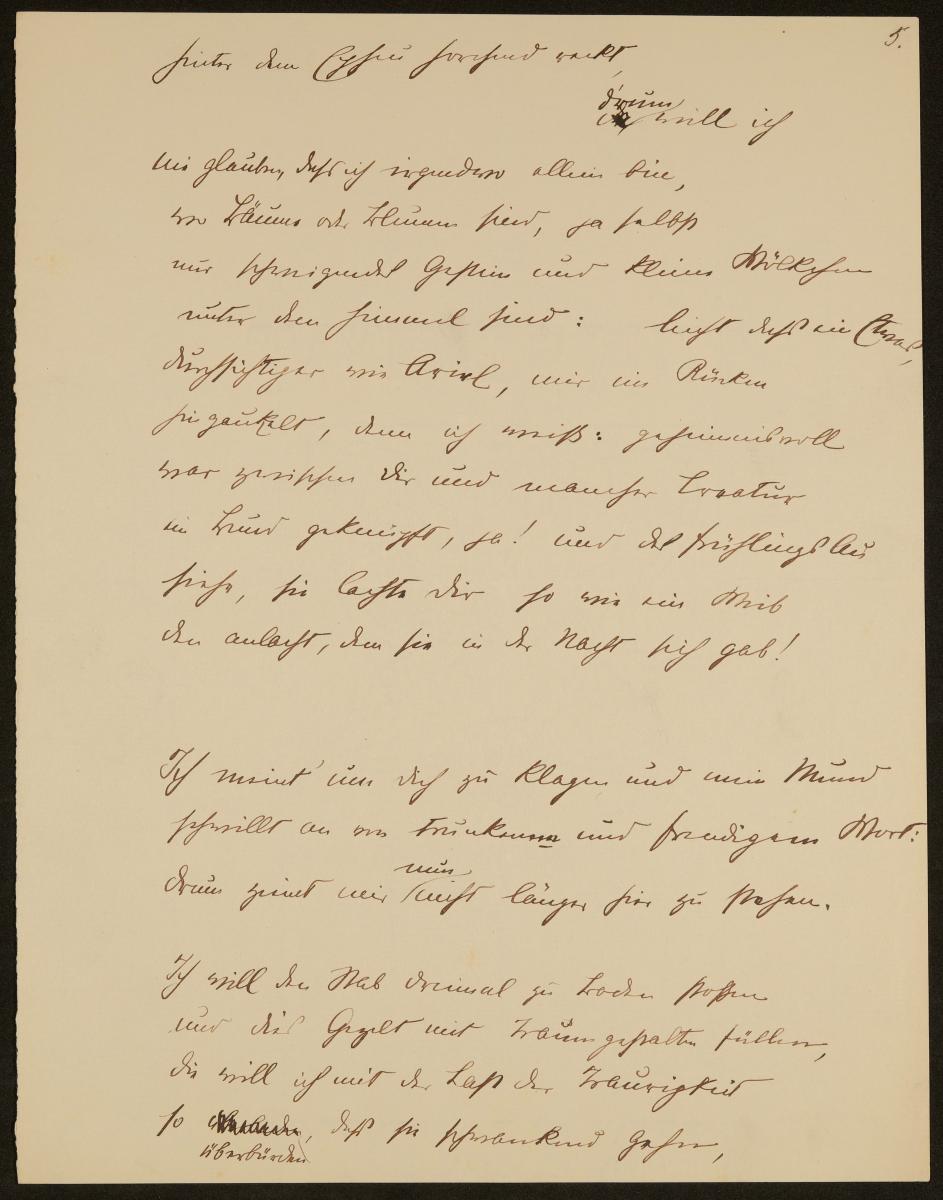 5.
hinter dem Epheu horchend weckt,
drum
will ich
nie glauben, dass ich irgendwo allein bin,
wo Bäume oder Blumen sind, ja selbst
nur schweigendes Gestein und kleine Wölkchen
unter dem Himmel sind: leicht dass ein Etwas,
durchsichtiger wie Ariel, mir im Rücken
hingaukelt, denn ich weiß: geheimnisvoll
war zwischen dir und mancher Creatur
ein Bund geknüpft, ja! und des Frühlings Au
siehe, sie lachte dir so wie ein Weib
den anlacht, dem sie in der Nacht sich gab!
Ich meint' um dich zu klagen und mein Mund
schwillt an von trunkenem und freudigem Wort:
nun
drum ziemt mir nicht länger hier zu stehen.
Ich will den Stab dreimal zu Boden stoßen
und dies Gezelt mit Traumgestalten füllen,
die will ich mit der Last der Traurigkeit
so, dass sie schwankend gehen,
überbürden